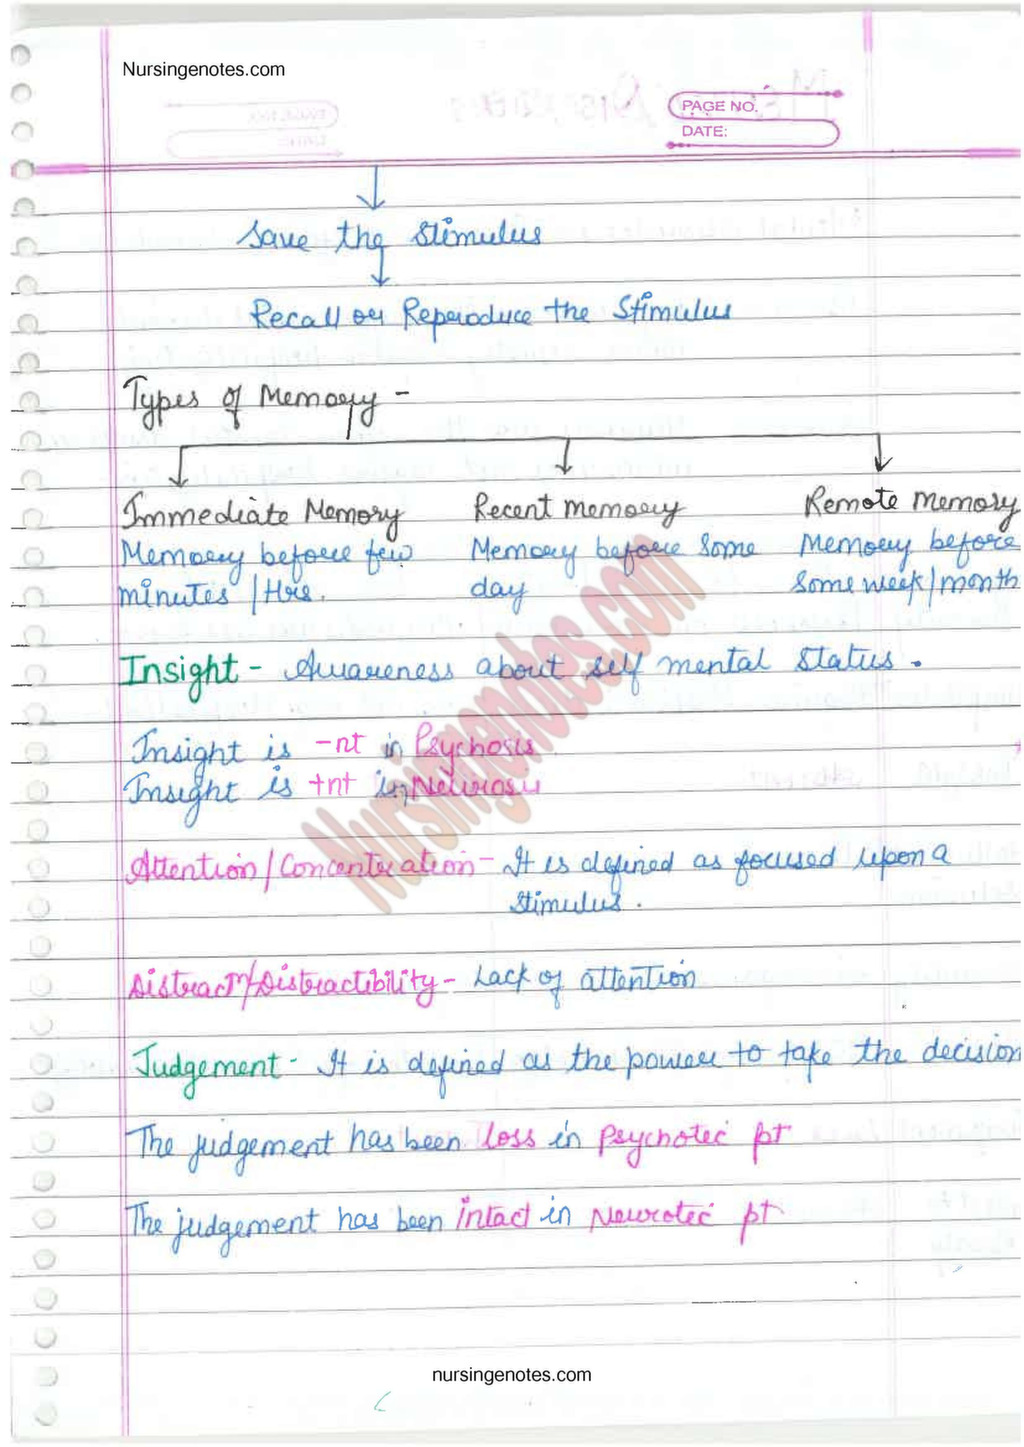 Nursingenotes.com
PAGE NO.
DATE:
Save the Stimulus
Recall or Reproduce the Stimulus
Types of Memory -
Immediate Memory
Memory before few
minutes / Hrs.
Recent memory
Memory before some
day
Remote memory
Memory before
some week/month
Insight - Awareness about self mental status.
Insight is -nt in Psychosis
Insight is +nt in Neurosis
Attention / Concentration - It is defined as focused upon a
stimulus.
Distractn/Distractibility - Lack of attention
Judgement - It is defined as the power to take the decision
The judgement has been loss in Psychotic pt
The judgement has been intact in Neurotic pt
Nursingenotes.com
nursingenotes.com